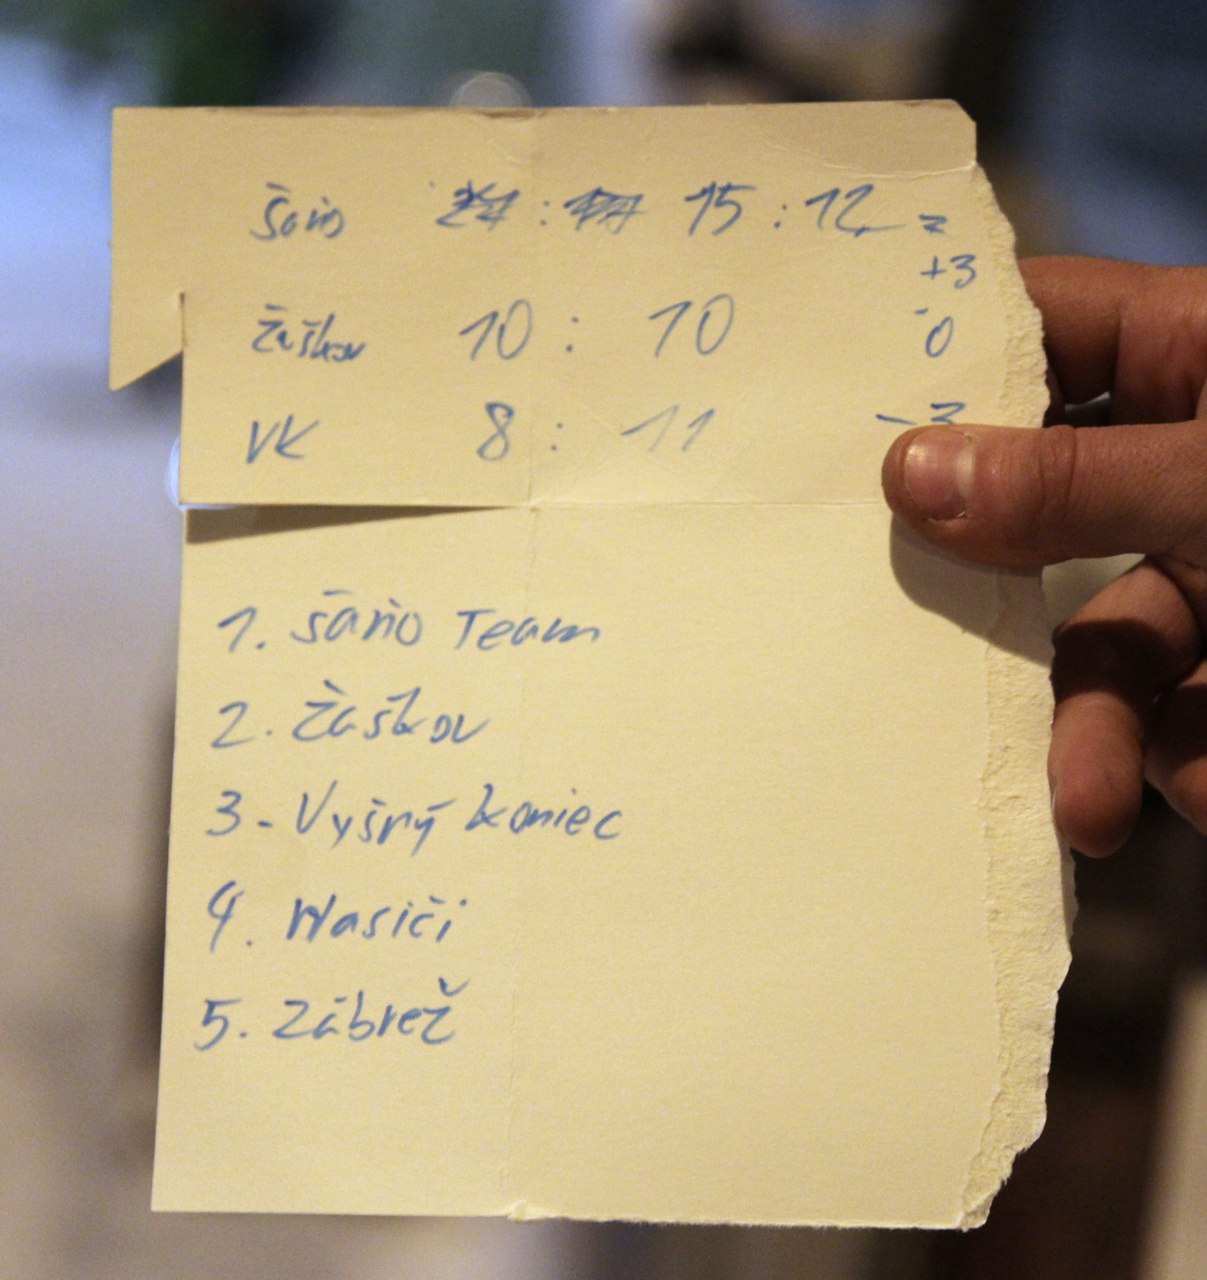 Šaňo 15 : 12 =
+3
Žaškov 10 : 10 0
VK 8 : 11 -3
1. Šaňo Team
2. Žaškov
3. Vyšný koniec
4. Hasiči
5. Zábrež